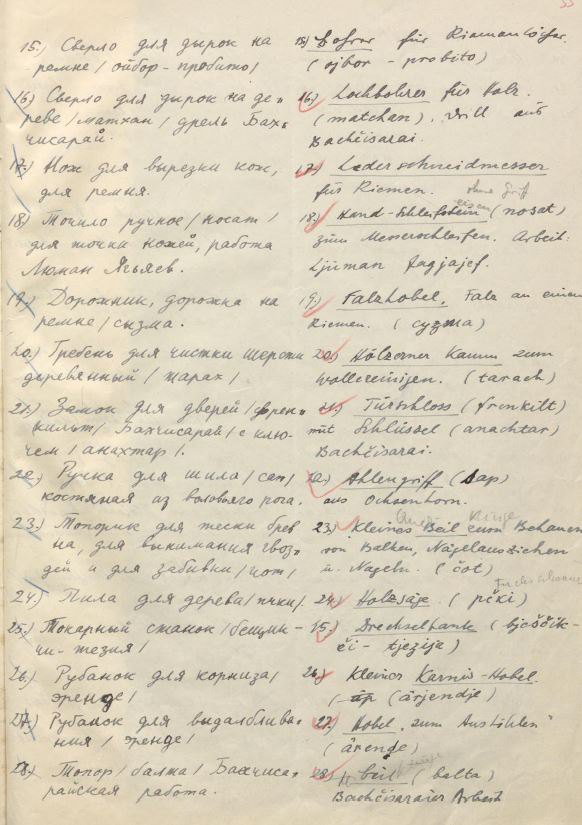 15.) Сверло для дырок на
ремне / ойбор - пробито /
16.) Сверло для дырок на де-
реве / матхан / дрель Бах-
чисарай.
17.) Нож для вырезки кож,
для ремня.
18.) Точило ручное / носат /
для точки ножей, работа
Люман Ягьяев.
19.) Дорожник, дорожка на
ремне / сызма.
20.) Гребень для чистки шерсти
деревянный / тарах /
21.) Замок для дверей / френ-
кильт / Бахчисарай / с клю-
чем / анахтар /.
22.) Ручка для шила / сап /
костяная из воловьего рога.
23.) Топорик для тески брев
на, для выкимания гвоз-
дей и для забивки / чот /
24.) Пила для дерева / пчки /.
25.) Токарный станок /
чи - тезия /
26.) Рубанок для корниза /
эренде /
27.) Рубанок для выдалблива-
ния / эренде /
28.) Топор / балта / Бахчиса-
райская работа.
15.) Bohrer für Riemenlöcher.
(ojbor - probito)
16.) Lochbohrer für Holz.
(matchen). Drill aus
Bachčisarai.
17.) Lederschneidmesser
für Riemen. ohne Griff
18.) Hand-Schleifstein eisen (nosat)
zum Messerschleifen. Arbeit:
Ljuman Jagjajef.
19.) Falzhobel, Falz an einem
Riemen. (cyzma)
20.) Hölzerner Kamm zum
Wollereinigen. (tarach)
21.) Türschloss (frenkilt)
mit Schlüssel (anachtar)
Bachčisarai.
22.) Ahlengriff (sap)
aus Ochsenhorn.
23.) Kleines Beil zum Behauen
von Balken, Nägelausziehen
u. Nageln. (čot)
24.) Holzsäge. (pčki)
15.) Drechselbank (bješčik-
či - tjezija)
26.) Kleiner Karnis-Hobel.
(ärjendje)
27.) Hobel, "zum Aushöhlen"
(ärenge)
28.) Beil (balta)
Bachčisaraier Arbeit